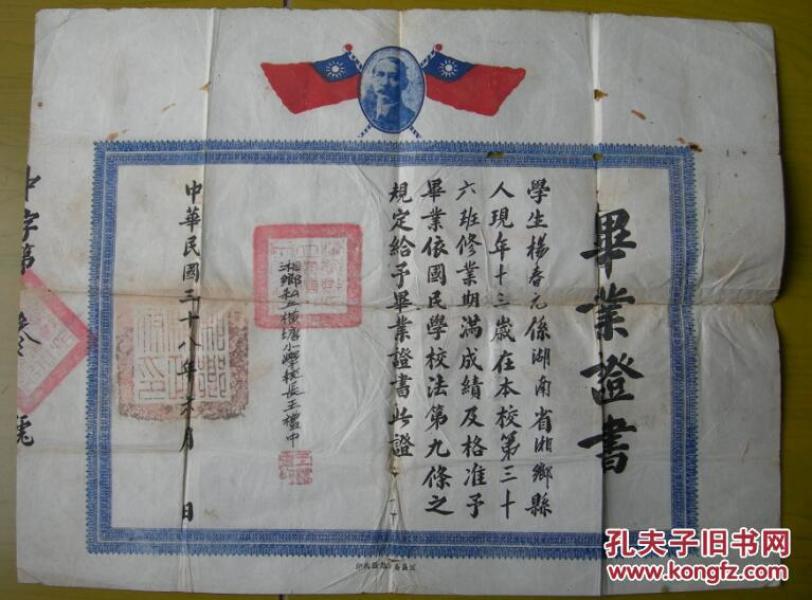 畢業證書
學生楊春元係湖南省湘鄉縣
人現年十三歲在本校第三十
六班修業期滿成績及格准予
畢業依國民學校法第九條之
規定給予畢業證書此證
湘鄉私立橫塘小學校長王禮中
中華民國三十八年六月 日
中字第 號
孔夫子旧书网
www.kongfz.com